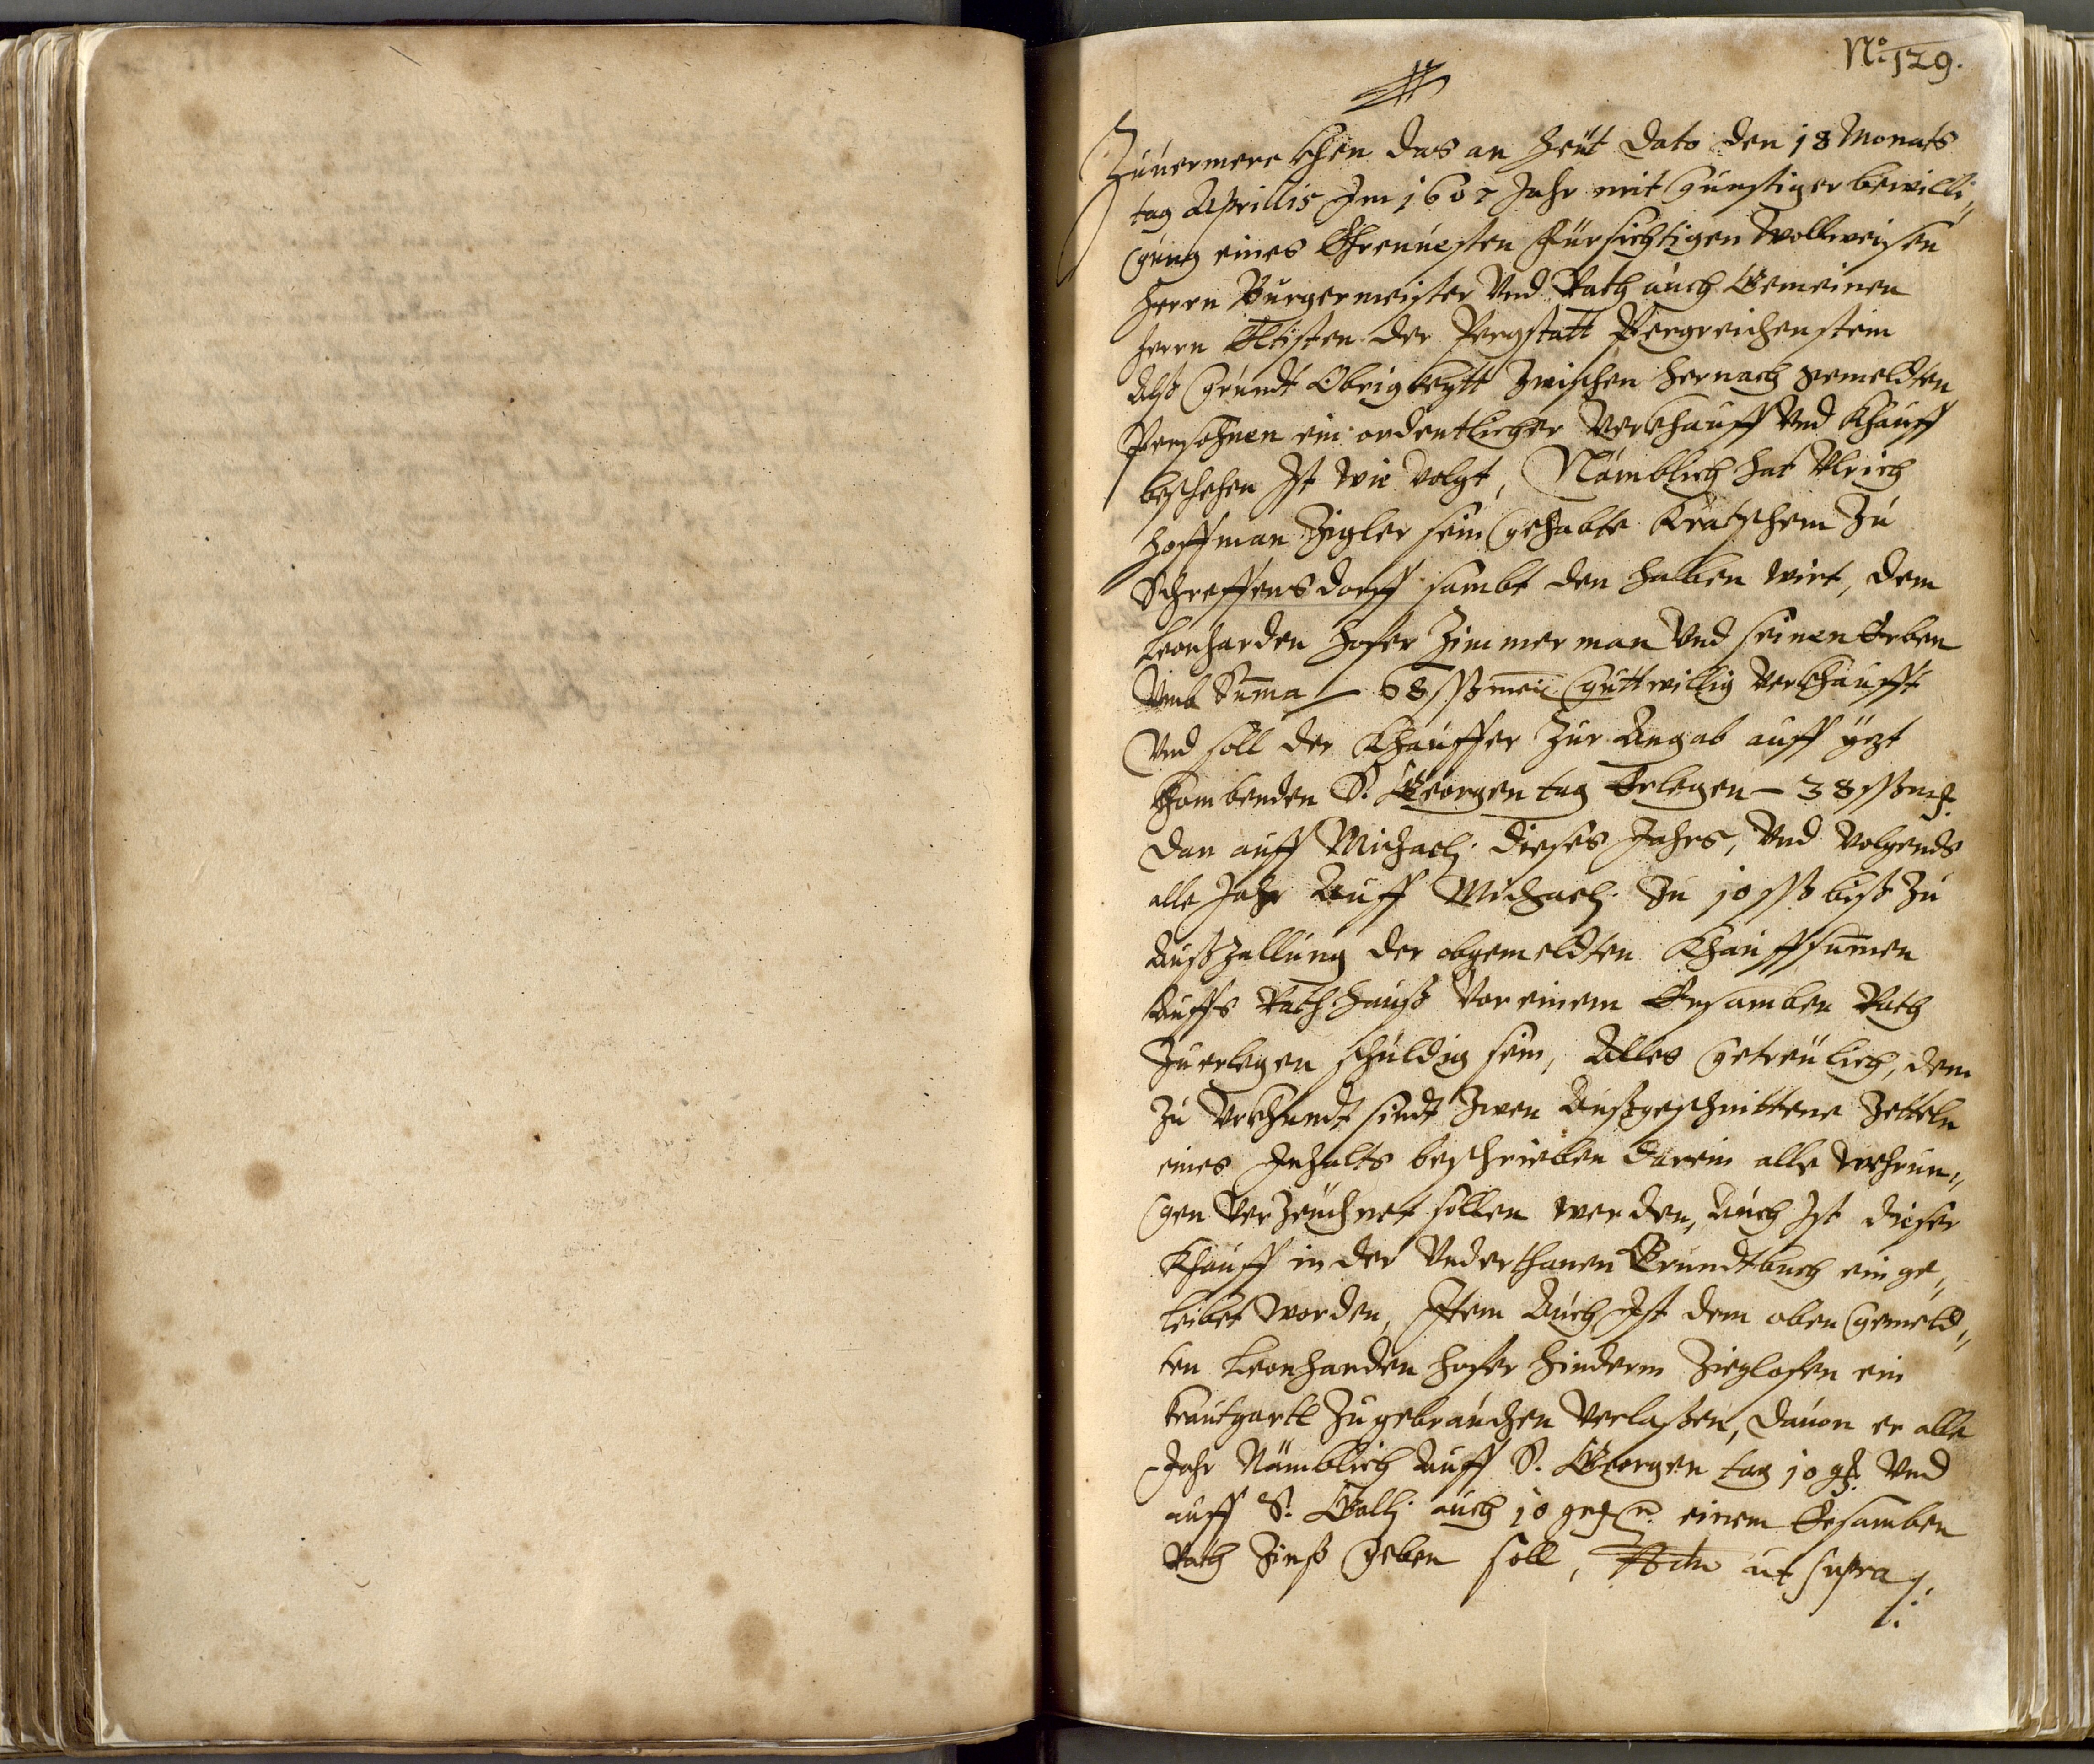 No 129.
Zuuermerckhen das an heüt dato den 18 Monats
tag Aprillis Im 1607 Jahr mit gunstiger bewilli,,
gung eines Ehrnuesten Fürsichtigen Wollweisen
Herrn Burgermeister Vnd Rath auch Gemeinen
Herrn Eltisten der Pergstatt Pergreichenstein
Alß Grundt Obrigkeytt zwischen hernach gemeldten
Persohnen ein ordentlicher Verkhauff Vnd Khauff
beschehen Ist wie volgt, Nämblich hat Vlrich
Hoffman Zigler sein gehabte Kratschem Zu
Schroffensdorff sambt den halben wirt, dem
Leonharden Hofer Zimmerman Vnd seinen Erben
Vmb Suma 68 ßß mei. guttwillig Verkhaufft
Vnd soll der Khauffer Zur Angab auff yezt
khombenden S. Georgen tag Erlegen – 38 ßß m.
Dan auff Michaeli dieses Jahrs, Vnd Volgends
alle Jahr Auff Michaeli Zu 10 ßß biß Zu
Außzallung der obgemeldten Khauffsumen
Auffs Rathhauß Vor einem Ersamben Rath
Zuerlegen schuldig sein, Alles getreülich, dem
Zu Vrkhundt sindt Zwen Außgeschnittene Zetteln
eines Inhalts beschrieben darein alle wehrun,,
gen Verzeichnet sollen werden, Auch Ist dieser
Khauff in der Vnderthanen Grundtbuch einge,,
leibet worden, Item Auch Ist dem oben gemeld,,
ten Leonharden Hofer hinderm Zieglofen ein
krautgartl Zugebrauchen Verlaßen, dauon er alle
Jahr Nämblich Auff S. Georgen tag 10 g. Vnd
auff S. Galli auch 10 g. einem Ersamben
Rath Zinß geben soll, Actu ut supra